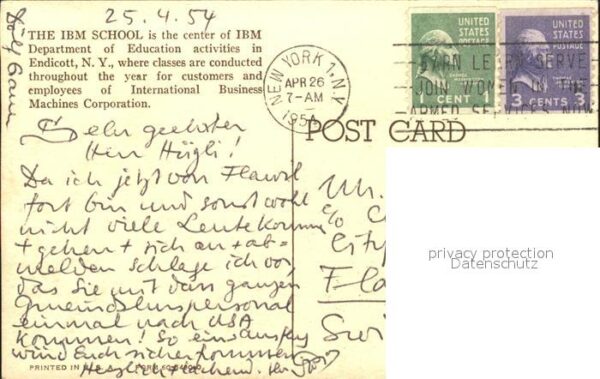 25.4.54
THE IBM SCHOOL is the center of IBM
Department of Education activities in
Endicott, N. Y., where classes are conducted
throughout the year for customers and
employees of International Business
Machines Corporation.
NEW YORK 1, N.Y.
APR 26
7-AM
1954
UNITED
STATES
POSTAGE
1 CENT
UNITED
STATES
POSTAGE
3 CENTS 3
EARN LEARN SERVE
JOIN WOMEN IN THE
ARMED SERVICES NOW
POST CARD
Sehr geehrter
Herr Hügli!
Da ich jetzt von Flawil
fort bin und sonst wohl
nicht viele Leute kommen
+ gehen + sich an + ab-
melden schlage ich vor,
das Sie mit dem ganzen
Gmeindhuspersonal
einmal nach USA
kommen! So ein
wird Euch sicher kommen
Herzlich lachend. Ihr
Mr.
c/o
City
Fla
Swi
privacy protection
Datenschutz
PRINTED IN U.S.A.